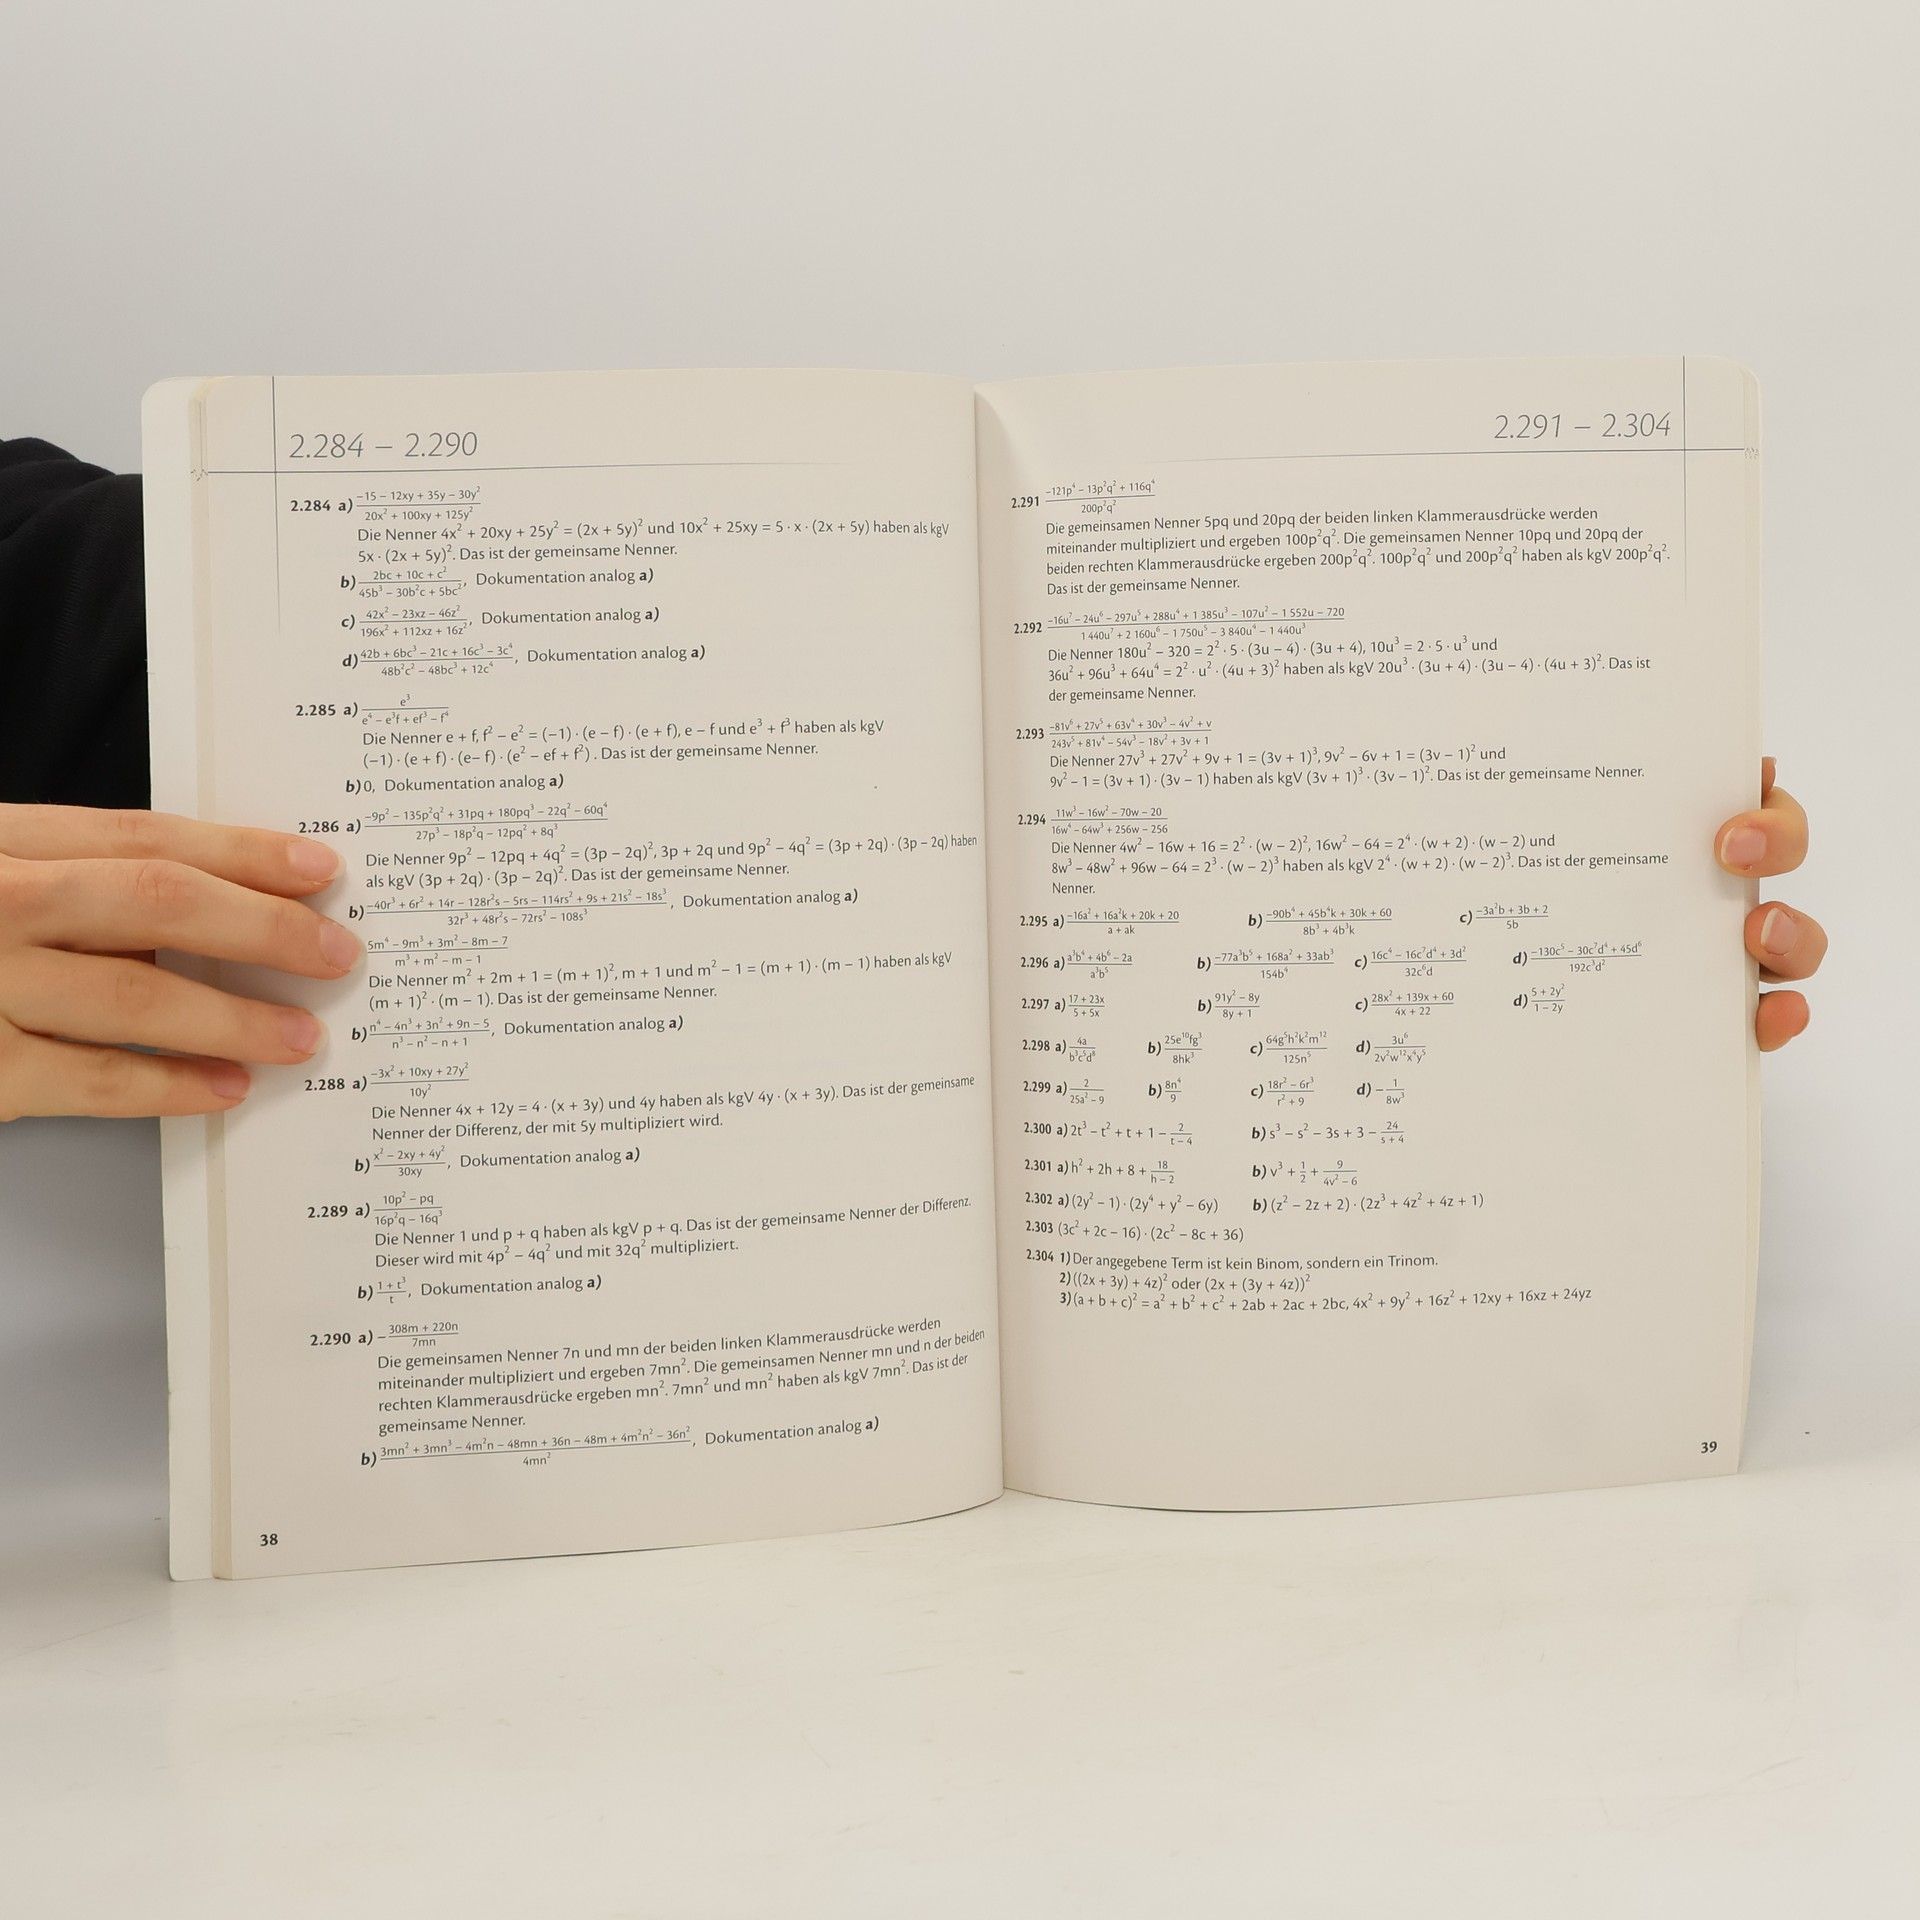 2.284 – 2.290
2.284 a) (−15 − 12xy + 35y − 30y²)/(20x² + 100xy + 125y²)
Die Nenner 4x² + 20xy + 25y² = (2x + 5y)² und 10x² + 25xy = 5 · x · (2x + 5y) haben als kgV
5x · (2x + 5y)². Das ist der gemeinsame Nenner.
b) (2bc + 10c + c²)/(45b³ − 30b²c + 5bc²), Dokumentation analog a)
c) (42x² − 23xz − 46z²)/(196x² + 112xz + 16z²), Dokumentation analog a)
d) (42b + 6bc³ − 21c + 16c³ − 3c⁴)/(48b²c² − 48bc³ + 12c⁴), Dokumentation analog a)
2.285 a) e³/(e⁴ − e³f + ef³ − f⁴)
Die Nenner e + f, f² − e² = (−1) · (e − f) · (e + f), e − f und e³ + f³ haben als kgV
(−1) · (e + f) · (e− f) · (e² − ef + f²) . Das ist der gemeinsame Nenner.
b) 0, Dokumentation analog a)
2.286 a) (−9p² − 135p²q² + 31pq + 180pq³ − 22q² − 60q⁴)/(27p³ − 18p²q − 12pq² + 8q³)
Die Nenner 9p² − 12pq + 4q² = (3p − 2q)², 3p + 2q und 9p² − 4q² = (3p + 2q) · (3p − 2q) haben
als kgV (3p + 2q) · (3p − 2q)². Das ist der gemeinsame Nenner.
b) (−40r³ + 6r² + 14r − 128r²s − 5rs − 114rs² + 9s + 21s² − 18s³)/(32r³ + 48r²s − 72rs² − 108s³), Dokumentation analog a)
(5m⁴ − 9m³ + 3m² − 8m − 7)/(m³ + m² − m − 1)
Die Nenner m² + 2m + 1 = (m + 1)², m + 1 und m² − 1 = (m + 1) · (m − 1) haben als kgV
(m + 1)² · (m − 1). Das ist der gemeinsame Nenner.
b) (n⁴ − 4n³ + 3n² + 9n − 5)/(n³ − n² − n + 1), Dokumentation analog a)
2.288 a) (−3x² + 10xy + 27y²)/(10y²)
Die Nenner 4x + 12y = 4 · (x + 3y) und 4y haben als kgV 4y · (x + 3y). Das ist der gemeinsame
Nenner der Differenz, der mit 5y multipliziert wird.
b) (x² − 2xy + 4y²)/(30xy), Dokumentation analog a)
2.289 a) (10p² − pq)/(16p²q − 16q³)
Die Nenner 1 und p + q haben als kgV p + q. Das ist der gemeinsame Nenner der Differenz.
Dieser wird mit 4p² − 4q² und mit 32q² multipliziert.
b) (1 + t³)/t, Dokumentation analog a)
2.290 a) −(308m + 220n)/(7mn)
Die gemeinsamen Nenner 7n und mn der beiden linken Klammerausdrücke werden
miteinander multipliziert und ergeben 7mn². Die gemeinsamen Nenner mn und n der beiden
rechten Klammerausdrücke ergeben mn². 7mn² und mn² haben als kgV 7mn². Das ist der
gemeinsame Nenner.
b) (3mn² + 3mn³ − 4m²n − 48mn + 36n − 48m + 4m²n² − 36n²)/(4mn²), Dokumentation analog a)
38
2.291 – 2.304
2.291 (−121p⁴ − 13p²q² + 116q⁴)/(200p²q²)
Die gemeinsamen Nenner 5pq und 20pq der beiden linken Klammerausdrücke werden
miteinander multipliziert und ergeben 100p²q². Die gemeinsamen Nenner 10pq und 20pq der
beiden rechten Klammerausdrücke ergeben 200p²q². 100p²q² und 200p²q² haben als kgV 200p²q².
Das ist der gemeinsame Nenner.
2.292 (−16u⁷ − 24u⁶ − 297u⁵ + 288u⁴ + 1 385u³ − 107u² − 1 552u − 720)/(1 440u⁷ + 2 160u⁶ − 1 750u⁵ − 3 840u⁴ − 1 440u³)
Die Nenner 180u² − 320 = 2² · 5 · (3u − 4) · (3u + 4), 10u³ = 2 · 5 · u³ und
36u² + 96u³ + 64u⁴ = 2² · u² · (4u + 3)² haben als kgV 20u³ · (3u + 4) · (3u − 4) · (4u + 3)². Das ist
der gemeinsame Nenner.
2.293 (−81v⁶ + 27v⁵ + 63v⁴ + 30v³ − 4v² + v)/(243v⁵ + 81v⁴ − 54v³ − 18v² + 3v + 1)
Die Nenner 27v³ + 27v² + 9v + 1 = (3v + 1)³, 9v² − 6v + 1 = (3v − 1)² und
9v² − 1 = (3v + 1) · (3v − 1) haben als kgV (3v + 1)³ · (3v − 1)². Das ist der gemeinsame Nenner.
2.294 (11w³ − 16w² − 70w − 20)/(16w⁴ − 64w³ + 256w − 256)
Die Nenner 4w² − 16w + 16 = 2² · (w − 2)², 16w² − 64 = 2⁴ · (w + 2) · (w − 2) und
8w³ − 48w² + 96w − 64 = 2³ · (w − 2)³ haben als kgV 2⁴ · (w + 2) · (w − 2)³. Das ist der gemeinsame
Nenner.
2.295 a) (−16a² + 16a²k + 20k + 20)/(a + ak) b) (−90b⁴ + 45b⁴k + 30k + 60)/(8b³ + 4b³k) c) (−3a²b + 3b + 2)/(5b)
2.296 a) (a³b⁴ + 4b⁶ − 2a)/(a³b⁵) b) (−77a³b⁵ + 168a² + 33ab³)/(154b⁴) c) (16c⁴ − 16c⁷d⁴ + 3d²)/(32c⁶d) d) (−130c⁵ − 30c⁷d⁴ + 45d⁶)/(192c³d²)
2.297 a) (17 + 23x)/(5 + 5x) b) (91y² − 8y)/(8y + 1) c) (28x² + 139x + 60)/(4x + 22) d) (5 + 2y²)/(1 − 2y)
2.298 a) 4a/(b³c⁵d⁸) b) (25e¹⁰fg³)/(8hk³) c) (64g⁵h²k²m¹²)/(125n⁵) d) 3u⁶/(2v²w¹²x⁴y⁵)
2.299 a) 2/(25a² − 9) b) 8n⁴/9 c) (18r² − 6r³)/(r² + 9) d) −1/(8w³)
2.300 a) 2t³ − t² + t + 1 − 2/(t − 4) b) s³ − s² − 3s + 3 − 24/(s + 4)
2.301 a) h² + 2h + 8 + 18/(h − 2) b) v³ + 1/2 + 9/(4v² − 6)
2.302 a) (2y² − 1) · (2y⁴ + y² − 6y) b) (z² − 2z + 2) · (2z³ + 4z² + 4z + 1)
2.303 (3c² + 2c − 16) · (2c² − 8c + 36)
2.304 1) Der angegebene Term ist kein Binom, sondern ein Trinom.
2) ((2x + 3y) + 4z)² oder (2x + (3y + 4z))²
3) (a + b + c)² = a² + b² + c² + 2ab + 2ac + 2bc, 4x² + 9y² + 16z² + 12xy + 16xz + 24yz
39